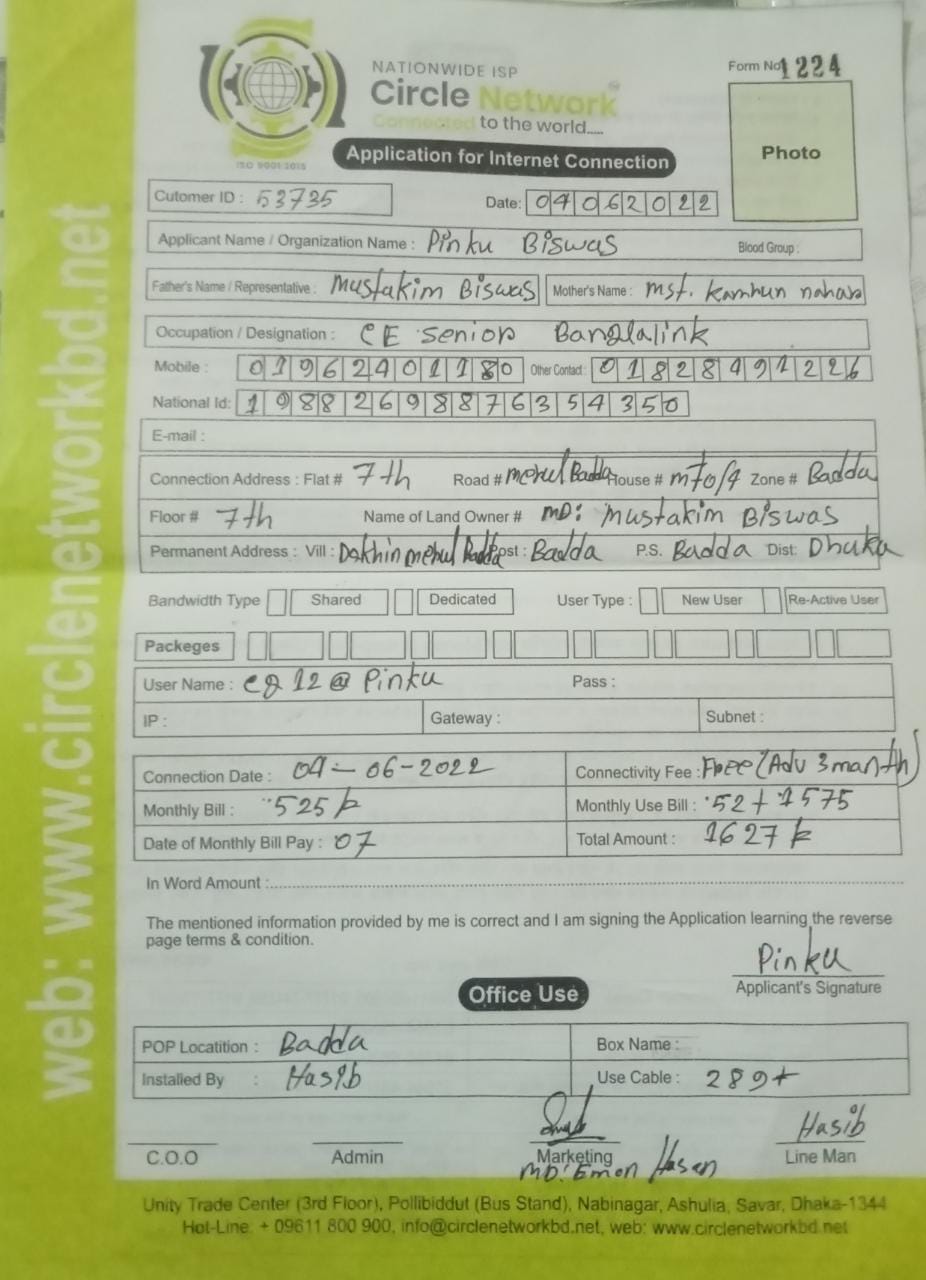 web: www.circlenetworkbd.net
NATIONWIDE ISP
Circle Network
Connected to the world.....
ISO 9001:2015
Form No 1224
Photo
Application for Internet Connection
Cutomer ID : 53735 Date: 04062022
Applicant Name / Organization Name : Pinku Biswas Blood Group :
Father's Name / Representative : Mustakim Biswas Mother's Name : mst. kamhun nahar
Occupation / Designation : CE senior Banglalink
Mobile : 01962401180 Other Contact : 01828491226
National Id: 19882698876354350
E-mail :
Connection Address : Flat # 7th Road # merul Badda House # Zone # Badda
Floor # 7th Name of Land Owner # MD: Mustakim Biswas
Permanent Address : Vill : Dakhin merul Badda Post : Badda P.S. Badda Dist: Dhaka
Bandwidth Type Shared Dedicated User Type : New User Re-Active User
Packeges
User Name : @ Pinku Pass :
IP : Gateway : Subnet :
Connection Date : 04-06-2022 Connectivity Fee : Free (Adv 3 manth)
Monthly Bill : 525 Monthly Use Bill : 52 + 1575
Date of Monthly Bill Pay : 07 Total Amount : 1627
In Word Amount :
The mentioned information provided by me is correct and I am signing the Application learning the reverse
page terms & condition.
Pinku
Applicant's Signature
Office Use
POP Locatition : Badda Box Name :
Installed By : Hasib Use Cable : 289+
Hasib
C.O.O Admin Marketing Line Man
MD: Emon Hasan
Unity Trade Center (3rd Floor), Pollibiddut (Bus Stand), Nabinagar, Ashulia, Savar, Dhaka-1344
Hot-Line: + 09611 800 900, info@circlenetworkbd.net, web: www.circlenetworkbd.net